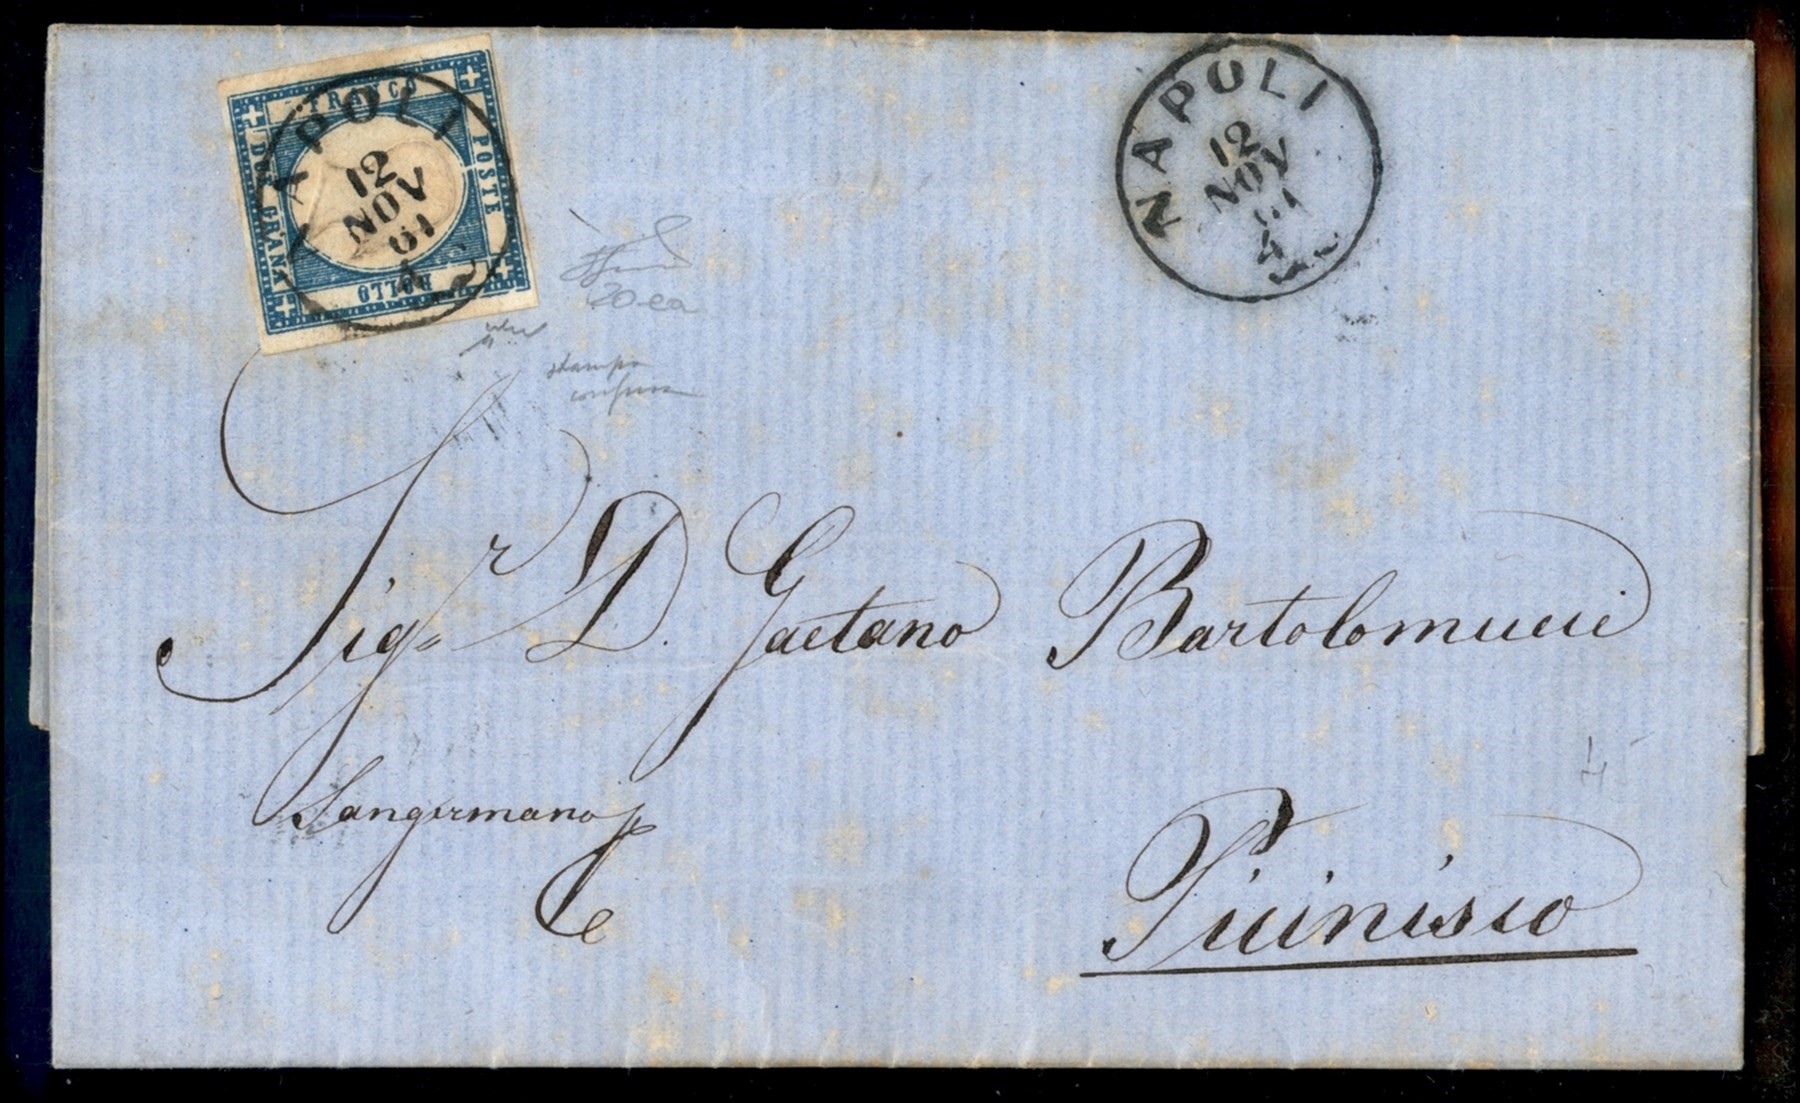 FRANCO
POSTE
BOLLO
DUE GRANA
NAPOLI
12
NOV
61
4
NAPOLI
12
NOV
61
4
20 ca
stampa
confusa
Sig.r D. Gaetano Bartolomucci
Sangermano p
Picinisco